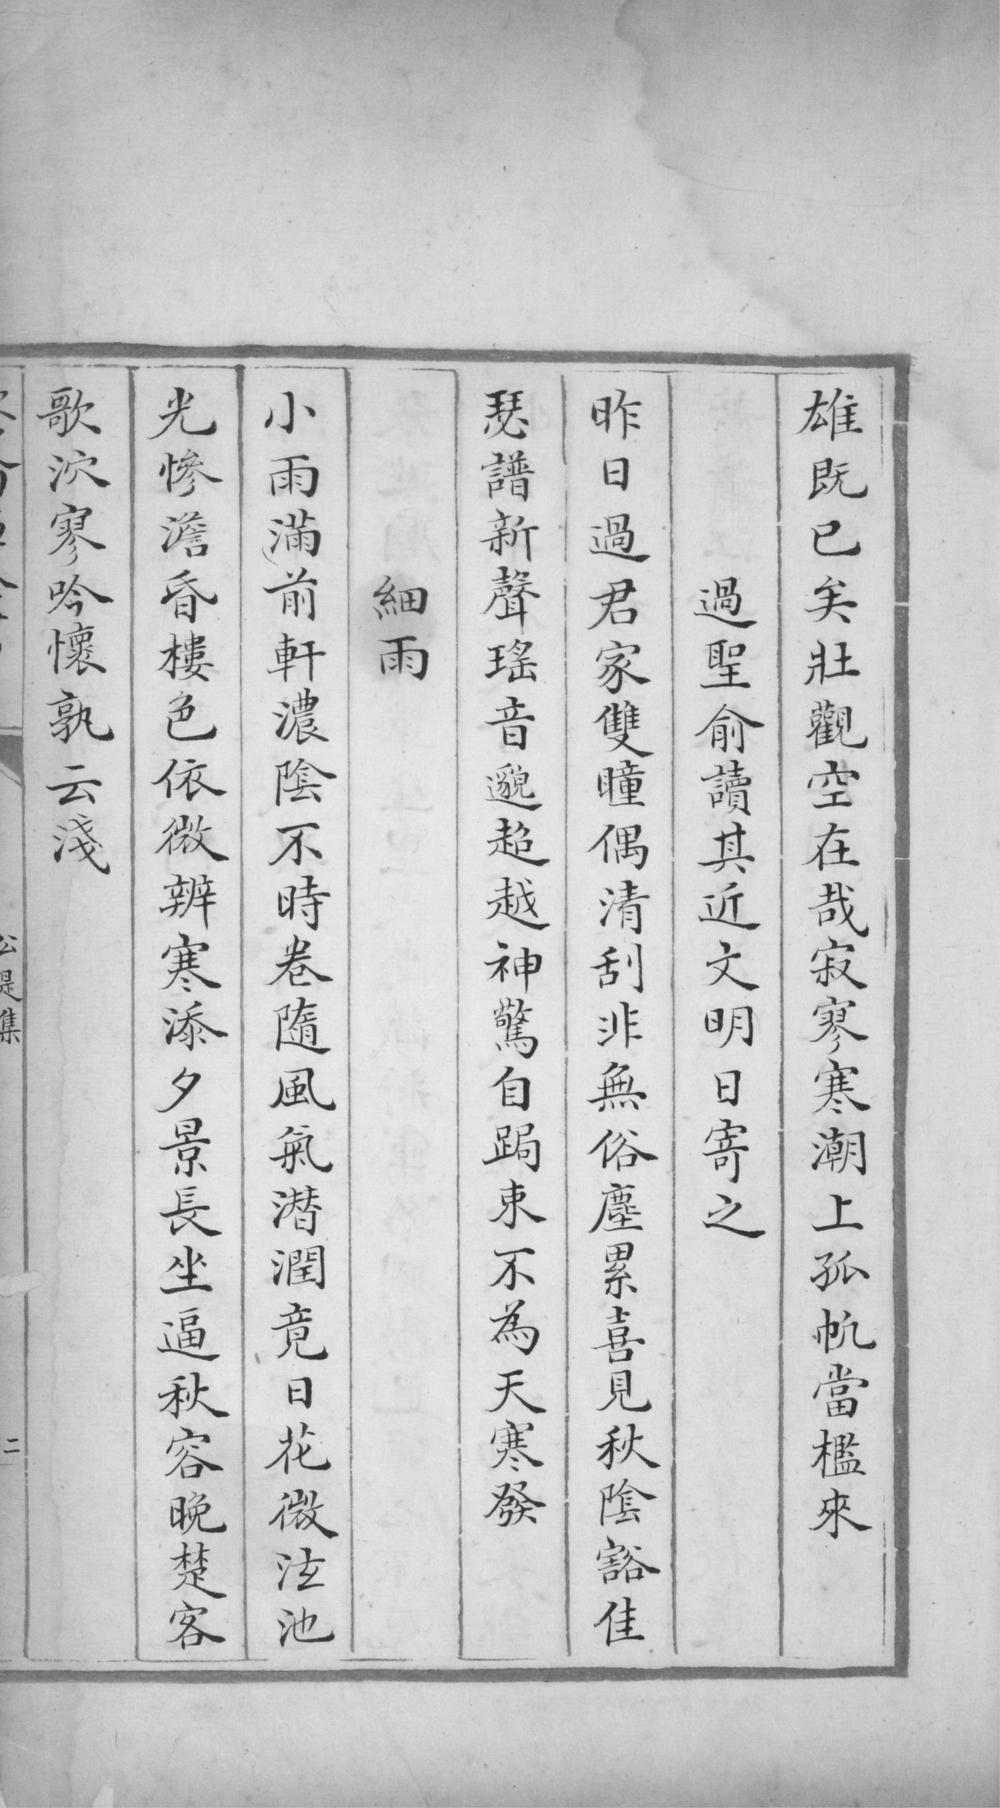 雄既已矣壯觀空在哉寂寥寒潮上孤帆當檻來
過聖俞讀其近文明日寄之
昨日過君家雙瞳偶清刮非無俗塵累喜見秋陰豁佳
瑟譜新聲瑤音邈超越神驚自跼束不為天寒發
細雨
小雨滿前軒濃陰不時卷隨風氣潜潤竟日花微泫池
光慘澹昏樓色依微辨寒添夕景長坐逼秋容晚楚客
歌泬寥吟懷孰云淺
公是集
二